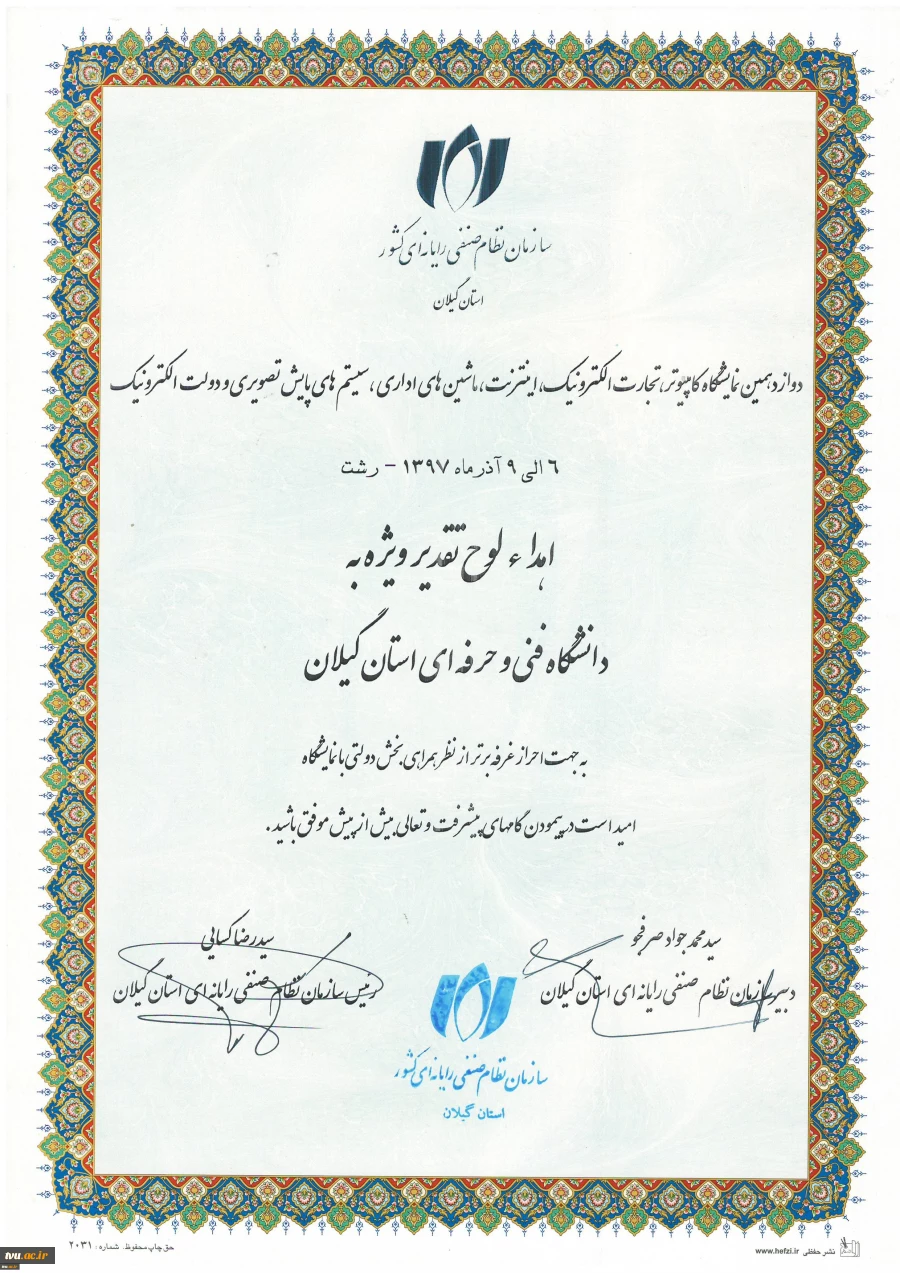 سازمان نظام صنفی رایانه ای کشور
استان گیلان
دوازدهمین نمایشگاه کامپیوتر، تجارت الکترونیک، اینترنت، ماشین های اداری، سیستم های پایش تصویری و دولت الکترونیک
۶ الی ۹ آذر ماه ۱۳۹۷ - رشت
اهداء لوح تقدیر ویژه به
دانشگاه فنی و حرفه ای استان گیلان
به جهت احراز غرفه برتر از نظر همراهی بخش دولتی با نمایشگاه
امید است در پیمودن گامهای پیشرفت و تعالی بیش از پیش موفق باشید.
سید محمد جواد صرفجو
دبیر سازمان نظام صنفی رایانه ای استان گیلان
سید رضا کسایی
رئیس سازمان نظام صنفی رایانه ای استان گیلان
سازمان نظام صنفی رایانه ای کشور
استان گیلان
نشر حفظی www.hefzi.ir
حق چاپ محفوظ. شماره: ۲۰۳۱
tvu.ac.ir
tvu.ac.ir